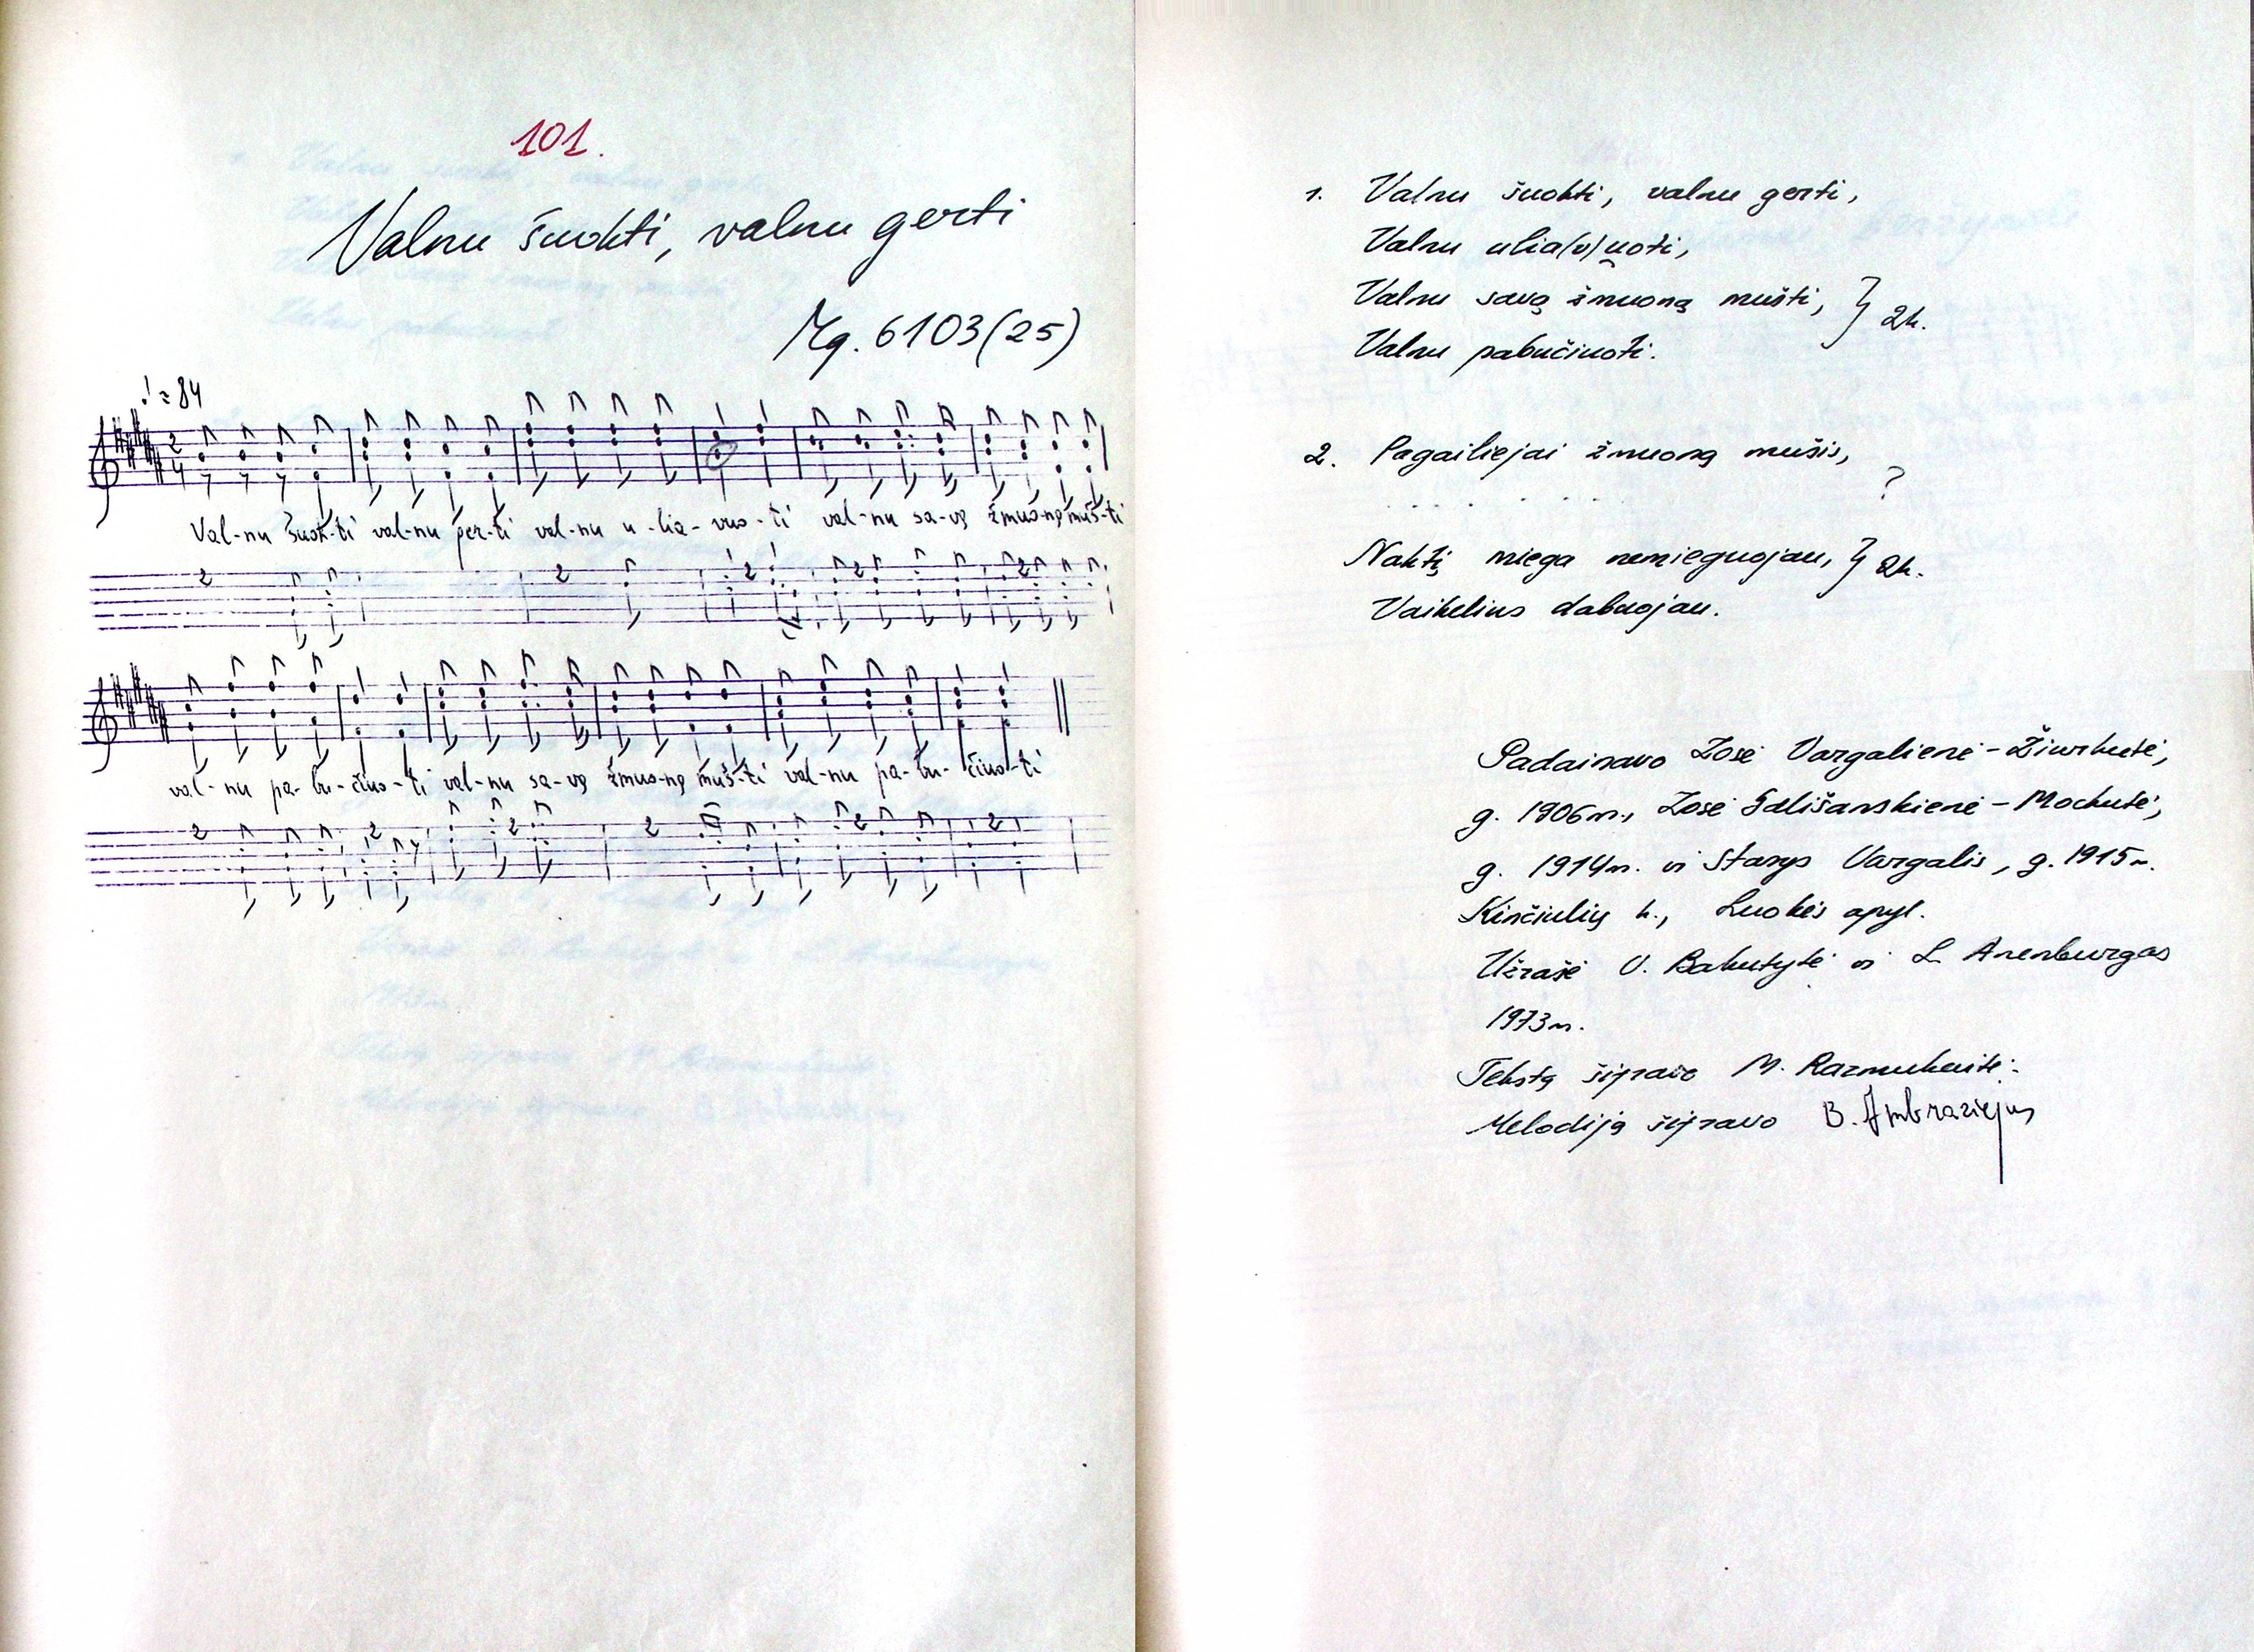 101.
Valnu šuokti, valnu gerti
Mg. 6103(25)
♩ = 84
2/4
Val-nu šuok-ti val-nu ger-ti val-nu u-lia-vuo-ti val-nu sa-vę žmuo-nę muš-ti
2 2 2 2 2
val-nu pa-bu-čiuo-ti val-nu sa-vę žmuo-nę muš-ti val-nu pa-bu-čiuo-ti
2 2 2 2 2 2
1. Valnu šuokti, valnu gerti,
Valnu ulia(v)uoti,
Valnu savą žmuoną mušti, } 2k.
Valnu pabučiuoti.
2. Pagailiejai žmuoną mušis,
. . . . . . . . ?
Naktį miega nemieguojau, } 2k.
Vaikelius dabuojau.
Padainavo Zosė Vargalienė-Žiurkutė,
g. 1906m., Zosė Gališanskienė-Mockutė,
g. 1914m. ir Stasys Vargalis, g. 1915m.
Kinčiulių k., Luokės apyl.
Užrašė V. Bakutytė ir L. Anenburgas
1973m.
Tekstą šifravo M. Razmukaitė.
Melodiją šifravo B. Ambraziejus